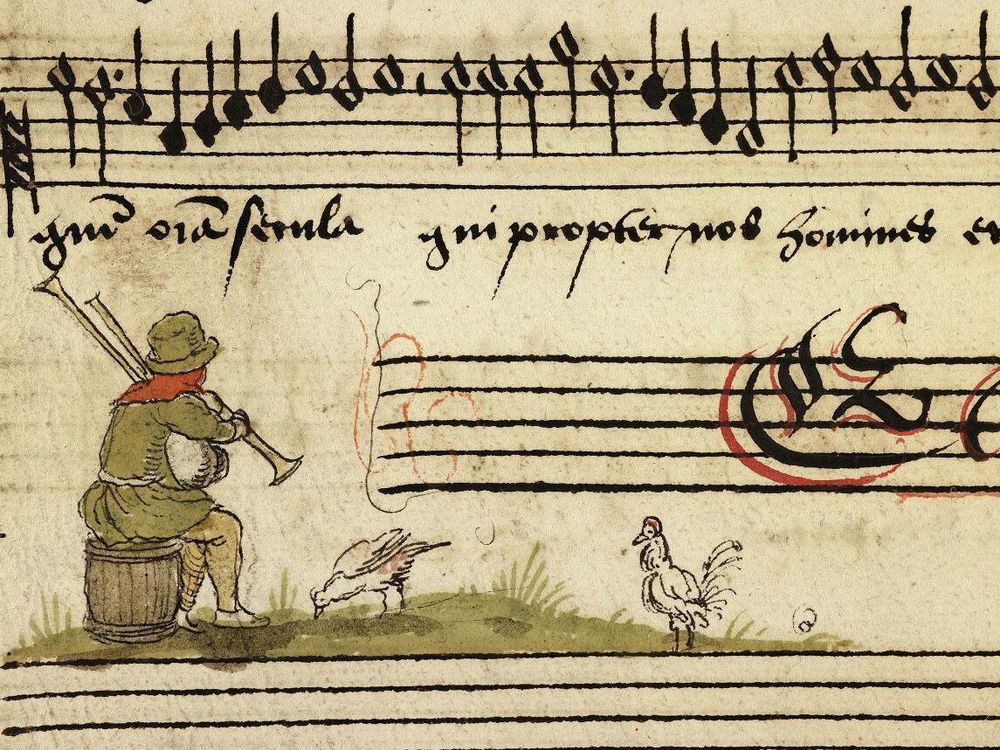 quē oīa secula qui propter nos homines et